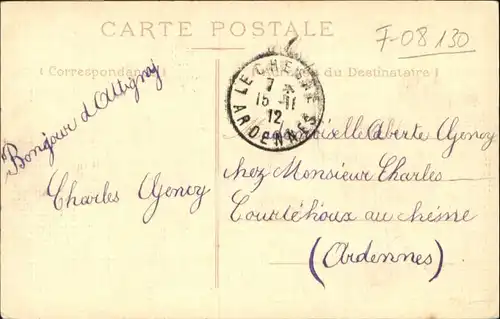 CARTE POSTALE
F-08 130
( Correspondance )
du Destinataire )
LE CHESNE
7
15 - 11
12
ARDENNES
Bonjour d'Attigny
Charles
chez Monsieur Charles
au chesne
(Ardennes)